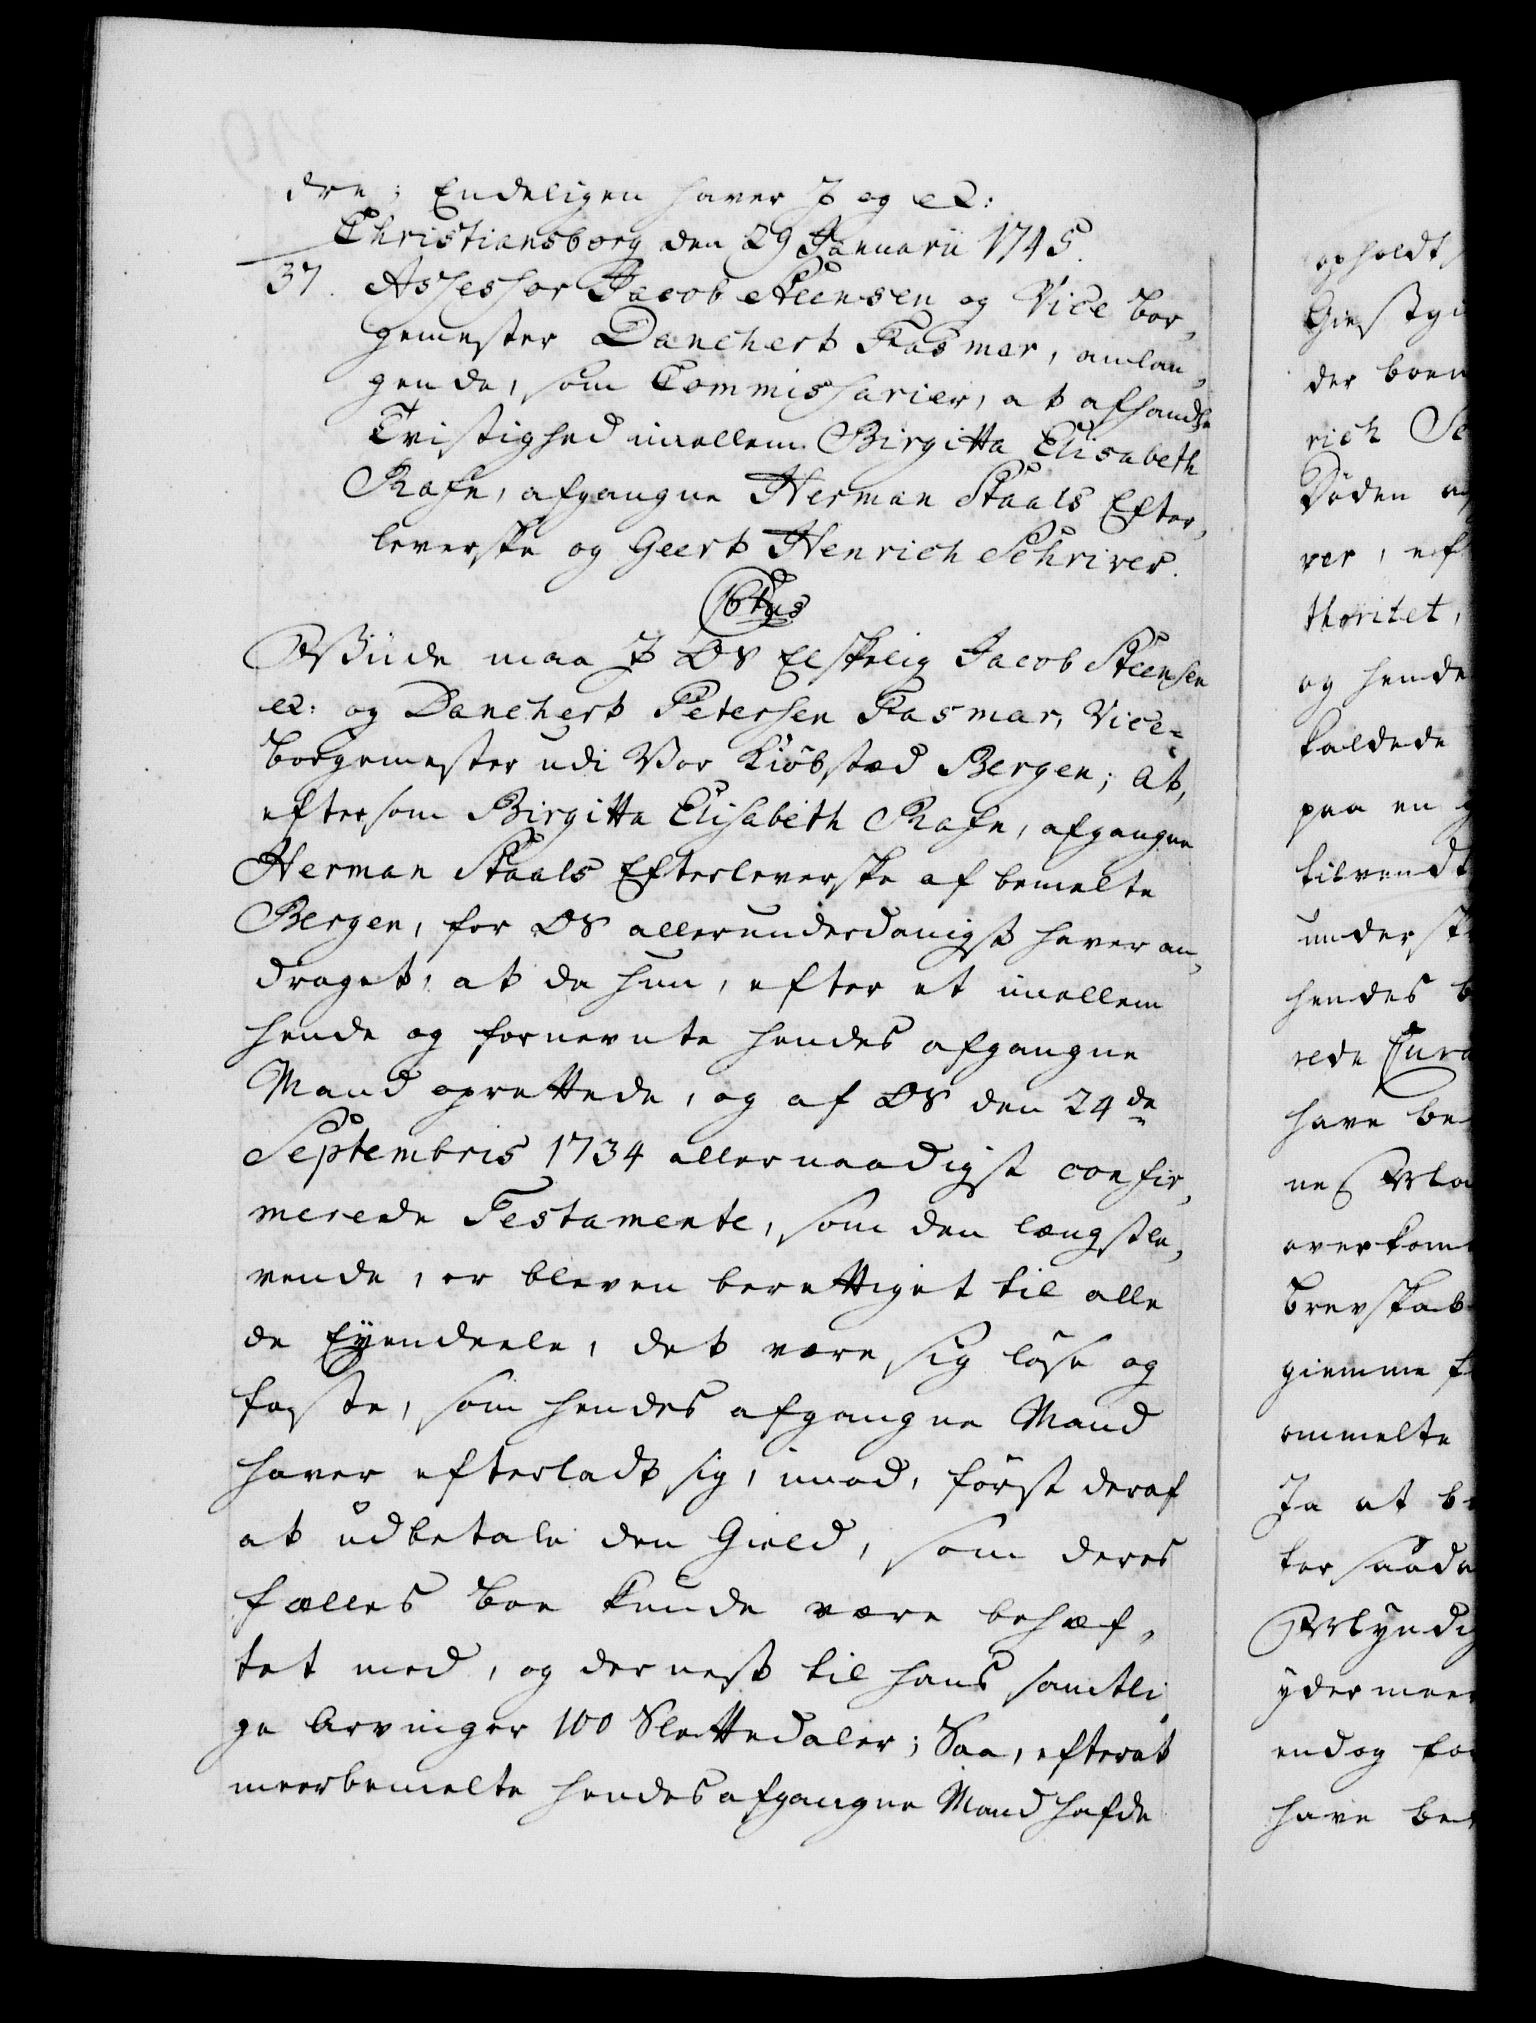 dre; Endeligen haver I og &c:
Christiansborg den 29 Januarii 1745.
37. Assessor Jacob Steensen og Vice Bor-
gemester Danchert Fasmer, anlan-
gende, som Commissarier, at afhandle
Tvistighed imellem Birgitta Elisabeth
Rafn, afgangne Herman Staals Efter-
leverske og Geert Henrich Schriver.
C 6tus
Vüde maa I Os Elskelig Jacob Steensen
&c: og Danchert Petersen Fasmer, Vice-
Borgemester udi Vor Kiöbstæd Bergen; At,
eftersom Birgitta Elisabeth Rafn, afgangne
Herman Staals Efterleverske af bemelte
Bergen, for Os allerunderdanigst haver an-
draget, at da hun, efter et imellem
hende og fornevnte hendes afgangne
Mand oprettede, og af Os den 24de
Septembris 1734 allernaadigst confir-
merede Testamente, som den længstle-
vende, er bleven berettiget til alle
de Eyendeele, det være sig löse og
faste, som hendes afgangne Mand
haver efterladt sig, imod, först deraf
at udbetale den Gield, som deres
fælles Boe kunde være behæf-
tet med, og dernest til hans samtli-
ge Arvinger 100 Slettedaler; Saa, efterat
meerbemelte hendes afgangne Mand hafde
opholdt
Giestgi
der boen
rich Sc
Döden
ver, eft
thoritet,
og hende
kaldede
paa en
tilvendt
underst
hendes b
rede Cura
have be
nes
overkom
Brevskab
giemme f
ommelte
Ja at b
ter saada
Mÿndig
ydermeer
endog fo
have be